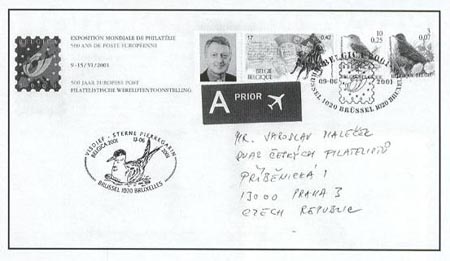 EXPOSITION MONDIALE DE PHILATÉLIE
500 ANS DE POSTE EUROPÉENNE
9-15/VI/2001
500 JAAR EUROPESE POST
FILATELISTISCHE WERELDTENTOONSTELLING
17 0,42
BELGIË
BELGIQUE
10
0,25
3
0,07
BELGICA 2001
09-06 2001
BRUSSEL 1020 BRUXELLES
A PRIOR
VISDIEF - STERNE PIERREGARIN
BELGICA 2001
13-06
2001
BRUSSEL 1020 BRUXELLES
MR. YAROSLAV MALEČEK
SVAZ ČESKÝCH FILATELISTŮ
PŘÍBĚNICKÁ 1
13000 PRAHA 3
CZECH REPUBLIC